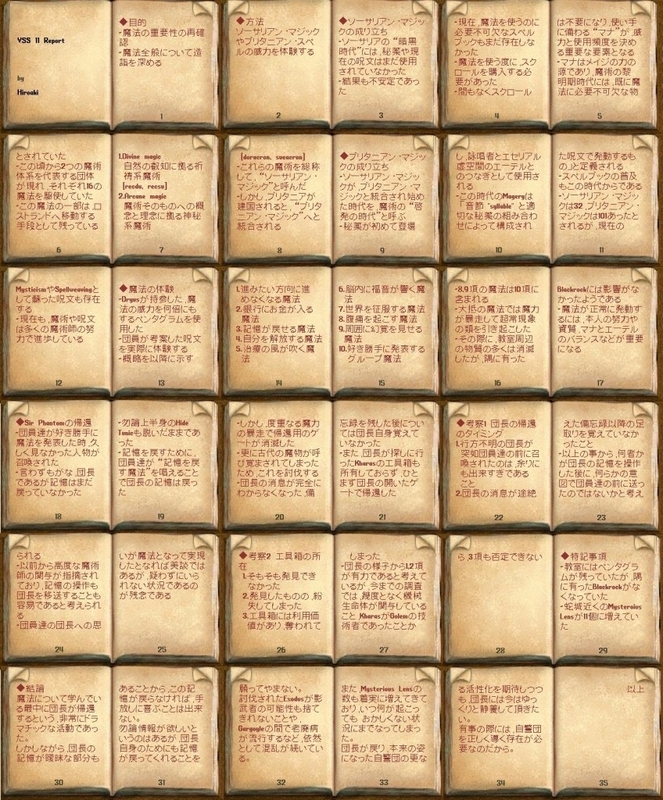 VSS 11 Report
by
Hiroaki
◆目的
・魔法の重要性の再確
認
・魔法全般について造
詣を深める
1
◆方法
ソーサリアン・マジック
やブリタニアン・スペ
ルの威力を体験する
2
◆ソーサリアン・マジック
の成り立ち
・ソーサリアの"暗黒
時代"には、秘薬や現
在の呪文はまだ使用
されていなかった
・結果も不安定であっ
た
3
・現在、魔法を使うのに
必要不可欠なスペル
ブックもまだ存在しな
かった
・魔法を使う度に、スク
ロールを購入する必
要があった
・間もなくスクロール
4
は不要になり、使い手
に備わる "マナ"が、威
力と使用頻度を決め
る重要な要素となる
・マナはメイジの力の
源であり、魔術の黎
明期時代には、既に魔
法に必要不可欠な物
5
とされていた
・この頃から2つの魔術
体系を代表する団体
が現れ、それぞれ16の
魔法を駆使していた
・この魔法の一部は、ロ
ストランドへ移動する
手段として残っている
6
1.Divine magic
自然の叡知に拠る祈
祷系魔術
2.Arcane magic
魔術そのものへの概
念と理念に拠る神秘
系魔術
7
・これらの魔術を総称
して、"ソーサリアン・
マジック"と呼んだ
・しかし、ブリタニアが
建国されると、"ブリタ
ニアン・マジック"へと
統合される
8
◆ブリタニアン・マジッ
クの成り立ち
・ソーサリアン・マジッ
クが、ブリタニアン・マ
ジックと統合され始め
た時代を、魔術の "啓
発の時代"と呼ぶ
・秘薬が初めて登場
9
し、詠唱者とエセリアル
虚空間のエーテルと
のつなぎとして使用さ
れる
・この時代のMageryは
「音節 "syllable" と適
切な秘薬の組み合わ
せによって構成され
10
た呪文で発動するも
の」と定義される
・スペルブックの普及
もこの時代からである
・ソーサリアン・マジッ
クは32、ブリタニアン・マ
ジックは101あったとさ
れるが、現在の
11
MysticismやSpellweavingと
して蘇った呪文も存在
する
・現在も、魔術や呪文
は多くの魔術師の努
力で進歩している
12
◆魔法の体験
・Orgusが持参した、魔
法の威力を何倍にも
するペンタグラムを使
用した
・団員が考案した呪文
を実際に体験する
・概略を以降に示す
13
1.進みたい方向に進
めなくなる魔法
2.銀行にお金が入る
魔法
3.記憶が戻せる魔法
4.自分を解放する魔法
5.治療の風が吹く魔
法
14
6.脳内に福音が響く魔
法
7.世界を征服する魔法
8.腹痛を起こす魔法
9.周囲に幻覚を見せる
魔法
10.好き勝手に発表する
グループ魔法
15
・8、9項の魔法は10項に
含まれる
・大抵の魔法では魔力
が暴走して超常現象
の類を引き起こした
・その際に、教室周辺
の物質の多くは消滅
したが、隅に有った
16
Blackrockには影響がな
かったようである
・魔法が正常に発動す
るには、本人の努力や
資質、マナとエーテル
のバランスなどが重要
になる
17
◆Sir Phantomの帰還
・団員達が好き勝手に
魔法を発表した時、久
しく見なかった人物が
召喚された
・言わずもがな、団長
であるが記憶はまだ
戻っていなかった
18
・勿論上半身のHide
Tunicも脱いだままであ
った
・記憶を戻すために、
団員達が "記憶を戻
す魔法"を唱えること
で団長の記憶は戻っ
た
19
・しかし、度重なる魔力
の暴走で帰還用のゲ
ートが消滅した
・更に古代の魔物が呼
び寄せられてしまった
ため、これを討伐する
・団長の消息が完全に
わからなくなった、備
20
忘録を残した後につい
ては団長自身覚えて
いなかった
・また、団長が探しに行
ったKharosの工具箱も
所有しておらず、ひと
まず団長の開いたゲ
ートで帰還した
21
◆考察1 団長の帰還
のタイミング
1.行方不明の団長が
突如団員達の前に召
喚されたのは、余りに
も出来すぎであるこ
と
2.団長の消息が途絶
22
えた備忘録以降の足
取りを覚えていなか
ったこと
・以上の事から、何者か
が団長の記憶を操作
した後に、何らかの意
図で団員達の前に送っ
たのではないかと考え
23
られる
・以前から高度な魔術
師の関与が指摘され
ており、記憶の操作も
団長を移送することも
容易であると考えられ
る
・団員達の団長への思
24
いが魔法となって実現
したとなれば美談では
あるが、疑わずにいら
れない状況であるの
が残念である
25
◆考察2 工具箱の所
在
1.そもそも発見でき
なかった
2.発見したものの、紛
失してしまった
3.工具箱には利用価
値があり、奪われて
26
しまった
・団長の様子から1、2項
が有力であると考えて
いるが、今までの調査
では、幾度となく機械
生命体が関与している
こと、KharosがGolemの技
術者であったことか
27
ら、3項も否定できない
28
◆特記事項
・教室にはペンタグラ
ムが残っていたが、隅
に有ったBlackrockがな
くなっていた
・蛇城近くのMysterious
Lensが11個に増えてい
た
29
◆結論
魔法について学んでい
る最中に団長が帰還
するという、非常にドラ
マチックな活動であっ
た。
しかしながら、団長の
記憶が曖昧な部分も
30
あることから、この記
憶が戻らなければ、手
放しに喜ぶことは出来
ない。
勿論情報が欲しいと
いうのはあるが、団長
自身のためにも記憶
が戻ってくれることを
31
願ってやまない。
討伐されたExodusが影
武者の可能性も捨て
きれないことや、
Gargoyleの間で老廃病
が流行するなど、依然
として混乱が続いてい
る。
32
また、Mysterious Lensの
数も着実に増えてきて
おり、いつ何が起こっ
ても おかしくない状
況にまでなってしまっ
た。
団長が戻り、本来の姿
になった自警団の更な
33
る活性化を期待しつつ
も、団長には今はゆっ
くりと静養して頂きた
い。
有事の際には、自警団
を正しく導く存在が必
要なのだから。
34
以上
35